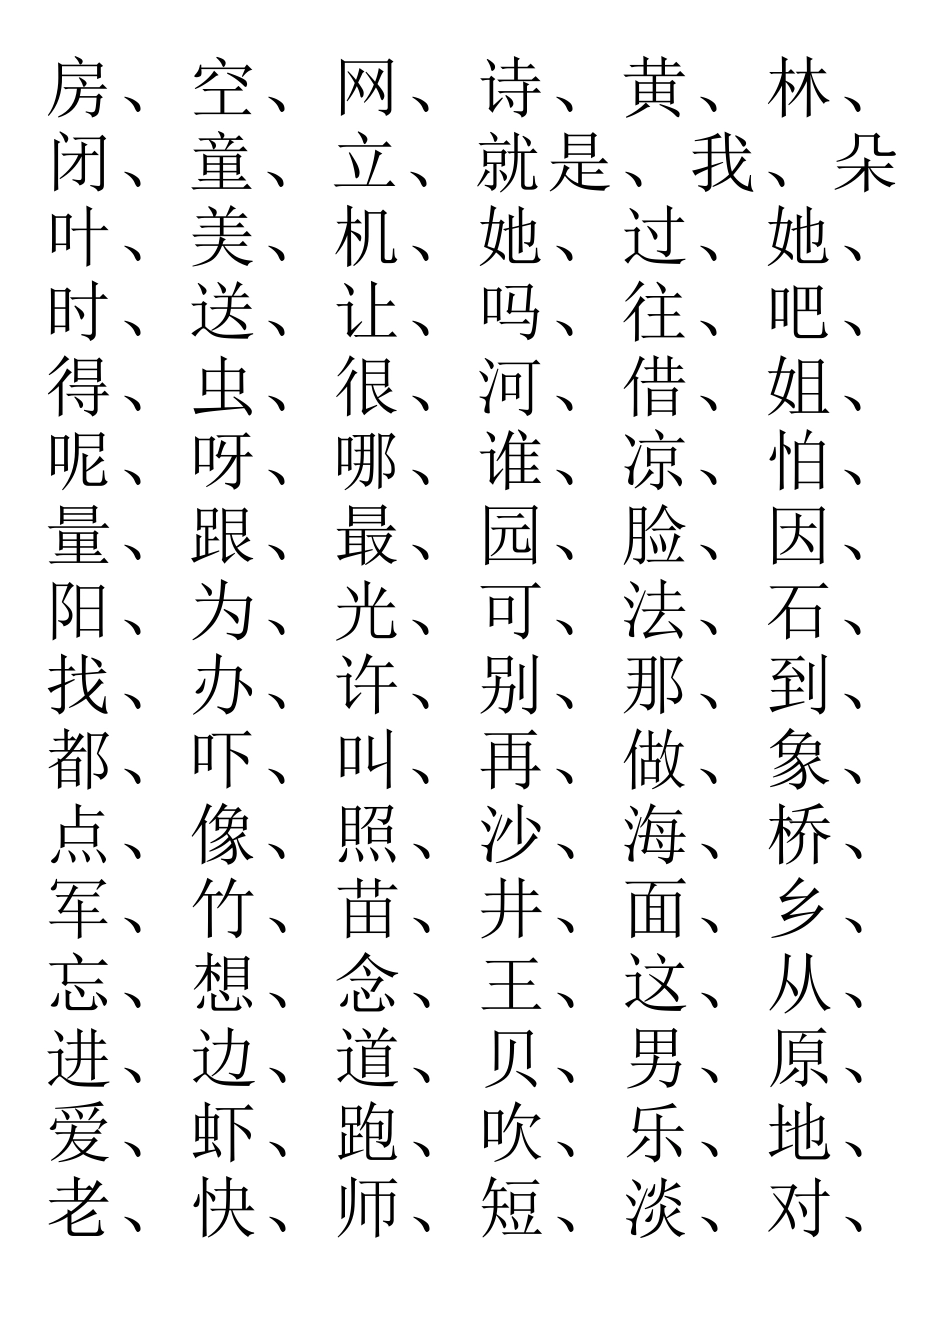 房、空、网、诗、黄、林、
闭、童、立、就是、我、朵
叶、美、机、她、过、她、
时、送、让、吗、往、吧、
得、虫、很、河、借、姐、
呢、呀、哪、谁、凉、怕、
量、跟、最、园、脸、因、
阳、为、光、可、法、石、
找、办、许、别、那、到、
都、吓、叫、再、做、象、
点、像、照、沙、海、桥、
军、竹、苗、井、面、乡、
忘、想、念、王、这、从、
进、边、道、贝、男、原、
爱、虾、跑、吹、乐、地、
老、快、师、短、淡、对、